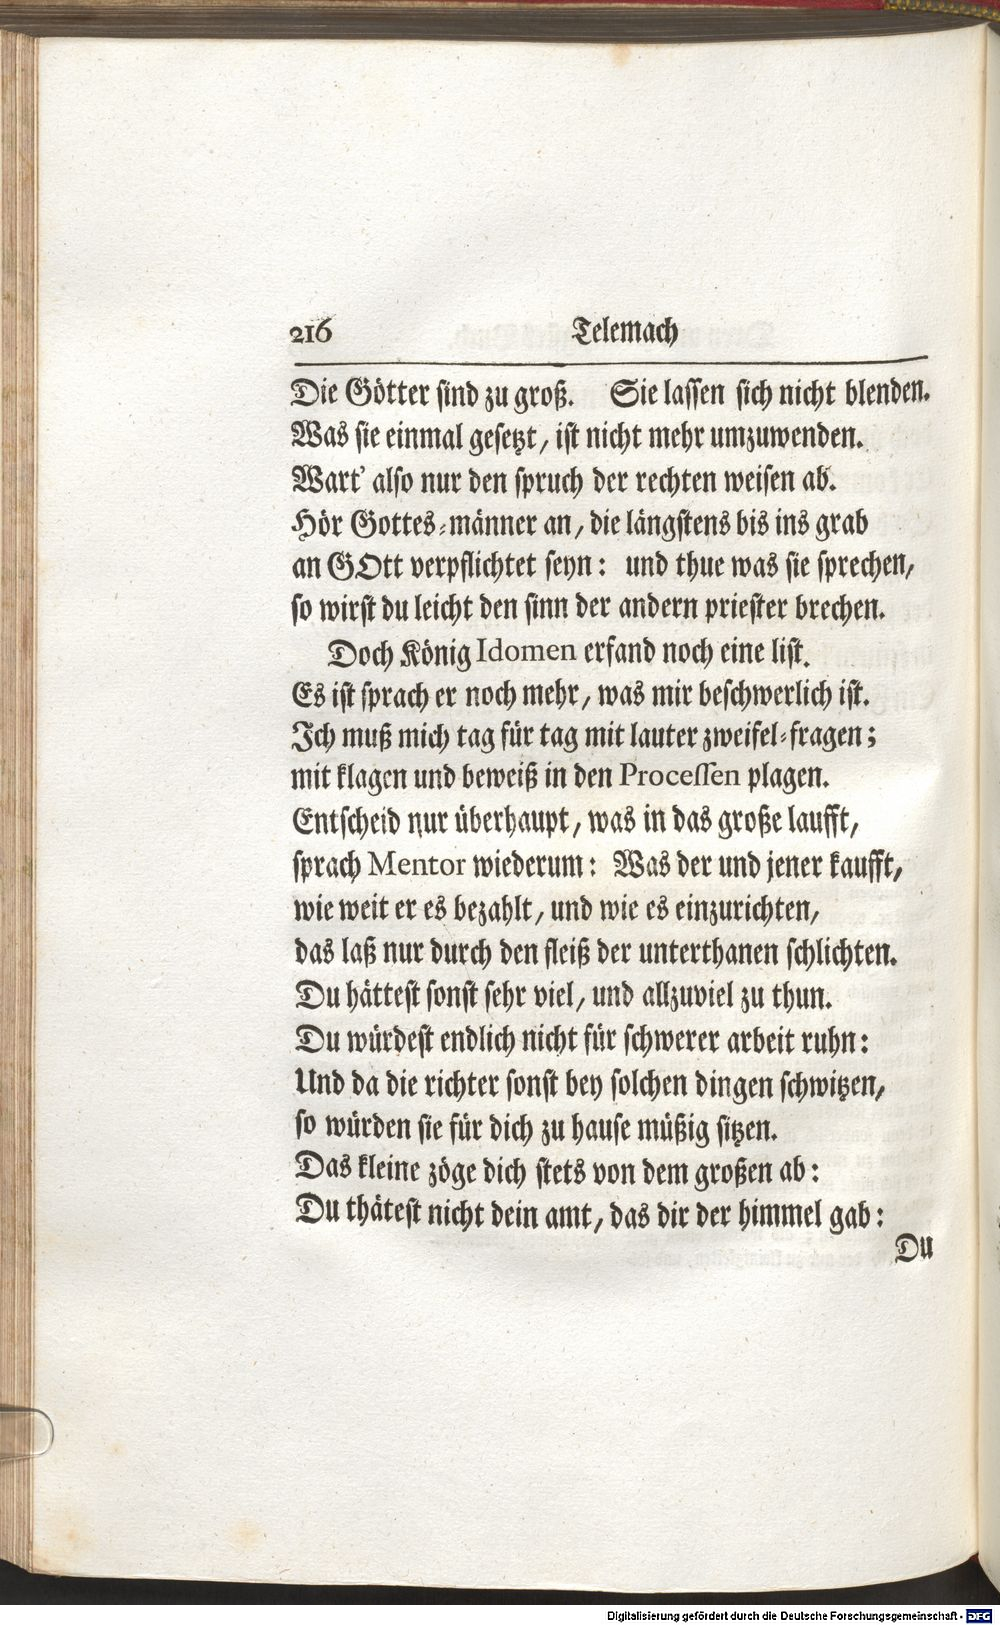 216 Telemach
Die Götter sind zu groß. Sie lassen sich nicht blenden.
Was sie einmal gesetzt, ist nicht mehr umzuwenden.
Wart' also nur den spruch der rechten weisen ab.
Hör Gottes-männer an, die längstens bis ins grab
an GOtt verpflichtet seyn: und thue was sie sprechen,
so wirst du leicht den sinn der andern priester brechen.
Doch König Idomen erfand noch eine list.
Es ist sprach er noch mehr, was mir beschwerlich ist.
Ich muß mich tag für tag mit lauter zweifel-fragen;
mit klagen und beweiß in den Processen plagen.
Entscheid nur überhaupt, was in das große laufft,
sprach Mentor wiederum: Was der und jener kaufft,
wie weit er es bezahlt, und wie es einzurichten,
das laß nur durch den fleiß der unterthanen schlichten.
Du hättest sonst sehr viel, und allzuviel zu thun.
Du würdest endlich nicht für schwerer arbeit ruhn:
Und da die richter sonst bey solchen dingen schwitzen,
so würden sie für dich zu hause müßig sitzen.
Das kleine zöge dich stets von dem großen ab:
Du thätest nicht dein amt, das dir der himmel gab:
Du
Digitalisierung gefördert durch die Deutsche Forschungsgemeinschaft - DFG